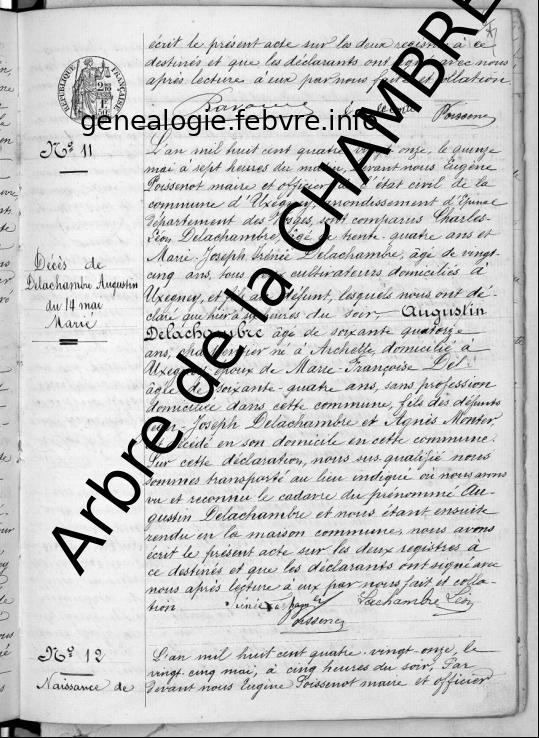 écrit le présent acte sur les deux registres à ce
destinés et que les déclarants ont signé avec nous
après lecture à eux par nous faite et collation
RÉPUBLIQUE FRANÇAISE
genealogie.febvre.info
Arbre de la CHAMBRE
Nº 11
Décès de
Delachambre Augustin
du 14 mai
Marié
L'an mil huit cent quatre vingt onze, le quinze
mai à sept heures du matin, devant nous Eugène
Poissenot maire et officier de l'état civil de la
commune d'Uxegney, arrondissement d'Epinal
département des Vosges, sont comparus Charles-
Léon Delachambre, âgé de trente-quatre ans et
Marie-Joseph Delachambre, âgé de vingt-
cinq ans, tous deux cultivateurs domiciliés à
Uxegney, et fils du défunt, lesquels nous ont dé-
claré que hier à heures du soir, Augustin
Delachambre âgé de soixante quatorze
ans, né à Archette, domicilié à
Uxegney époux de Marie-Françoise
âgée de soixante-quatre ans, sans profession
domiciliée dans cette commune, fils des défunts
Jean-Joseph Delachambre et Agnès
décédé en son domicile en cette commune.
Sur cette déclaration, nous sus qualifié nous
sommes transporté au lieu indiqué où nous avons
vu et reconnu le cadavre du prénommé Au-
gustin Delachambre et nous étant ensuite
rendu en la maison commune, nous avons
écrit le présent acte sur les deux registres à
ce destinés et que les déclarants ont signé avec
nous après lecture à eux par nous fait et colla-
tion. Lachambre Léon
Poissenot
Nº 12
Naissance de
L'an mil huit cent quatre-vingt-onze, le
vingt-cinq mai, à cinq heures du soir, Par
devant nous Eugène Poissenot maire et officier